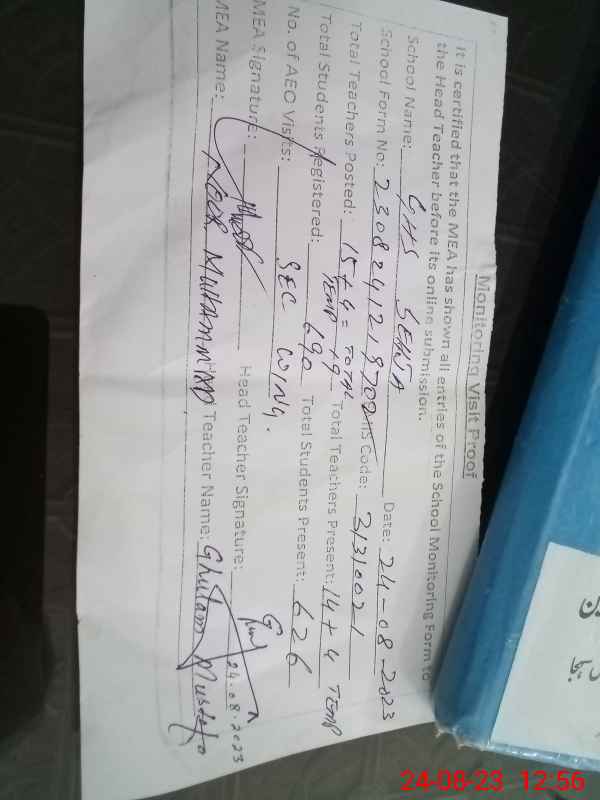 Monitoring Visit Proof
It is certified that the MEA has shown all entries of the School Monitoring Form to
the Head Teacher before its online submission.
School Name: GHS SEHNA Date: 24-08-2023
School Form No: 2308241219702 Code: 31310021
Total Teachers Posted: 15+4= TOTAL TEMP 19 Total Teachers Present: 14+4 TEMP
Total Students Registered: 690 Total Students Present: 626
No. of AEO Visits: SEC WING.
MEA Signature: Head Teacher Signature: 24.08.2023
MEA Name: MUHAMMAD Teacher Name: Ghulam Mustafa
24-08-23 12:56